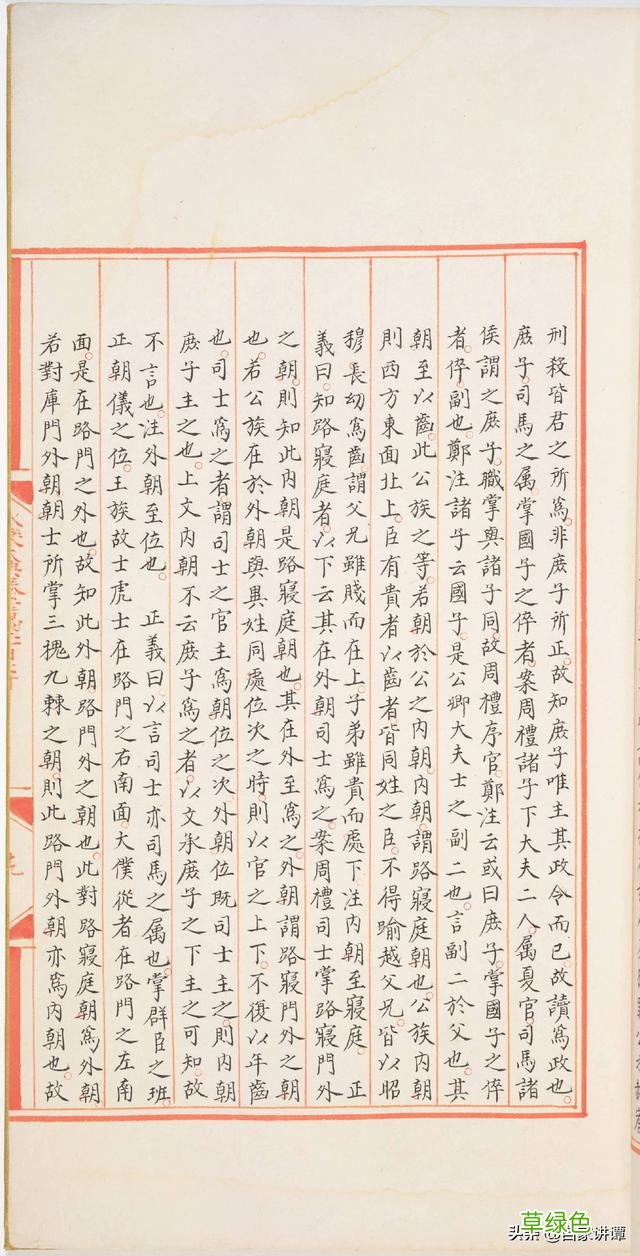 刑殺皆君之所爲。非庶子所正。故知庶子唯主其政令而已。故讀爲政也。
庶子。司馬之属。掌國子之倅者。案周禮諸子下大夫二人。属夏官司馬。諸
侯謂之庶子。職掌與諸子同。故周禮序官。鄭注云或曰庶子。掌國子之倅
者。倅。副也。鄭注諸子云國子。是公卿大夫士之副二也。言副二於父也。其
朝至以齒。此公族之等。若朝於公之内朝。内朝。謂路寢庭朝也。公族内朝
則西方東面北上。臣有貴者以齒者。皆同姓之臣。不得踰越父兄。皆以昭
穆長幼爲齒。謂父兄雖賤而在上。子弟雖貴而處下。注内朝至寢庭。 正
義曰。知路寢庭者。以下云其在外朝司士爲之。案周禮司士掌路寢門外
之朝。則知此内朝是路寢庭朝也。其在外至爲之。外朝謂路寢門外之朝
也。若公族在於外朝與異姓同處位次之時。則以官之上下。不復以年齒
也。司士爲之者。謂司士之官主爲朝位之次。外朝位既司士主之。則内朝
庶子主之也。上文内朝不云庶子爲之者。以文承庶子之下主之可知。故
不言也。注外朝至位也。 正義曰。以言司士亦司馬之属也。掌群臣之班。
正朝儀之位。王族故士虎士在路門之右南面。大僕從者在路門之左南
面。是在路門之外也。故知此外朝。路門外之朝也。此對路寢庭朝爲外朝
若對庫門外朝朝士所掌三槐九棘之朝。則此路門外朝亦爲内朝也。故
草绿色
头条 @百家讲谭